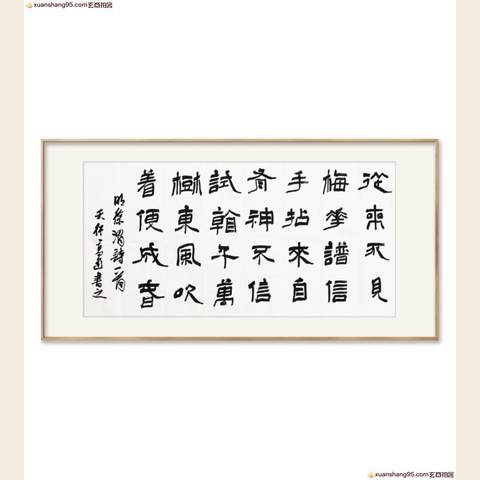 xuanshang95.com
從來不見
梅華譜信
手拈來自
有神不信
試看千萬
樹東風吹
着便成春
明徐渭詩一首
書之
xuanshang95.com